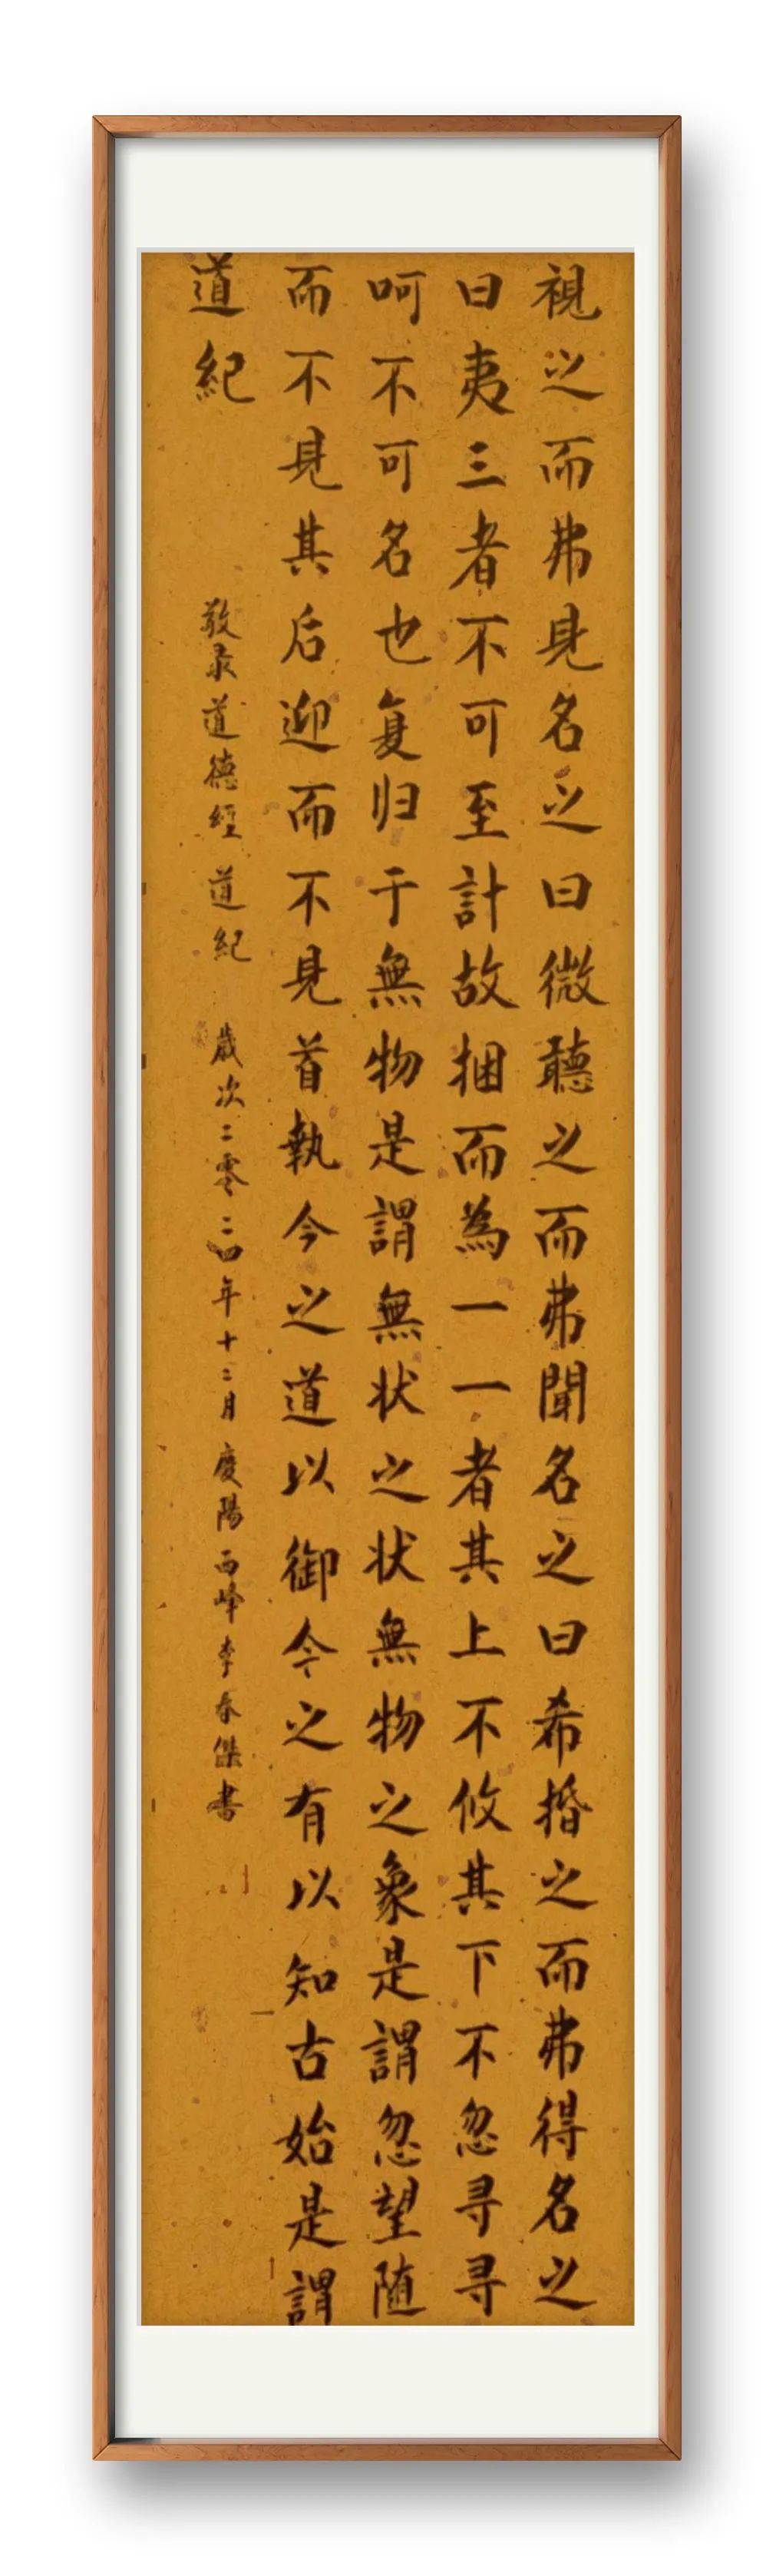 視之而弗見名之曰微聽之而弗聞名之曰希捪之而弗得名之
曰夷三者不可至計故捆而為一一者其上不攸其下不忽寻寻
呵不可名也复归于無物是謂無状之状無物之象是謂忽望随
而不見其后迎而不見首執今之道以御今之有以知古始是謂
道紀
敬录道德經 道紀 歲次二零二四年十二月 慶陽西峰李春傑書